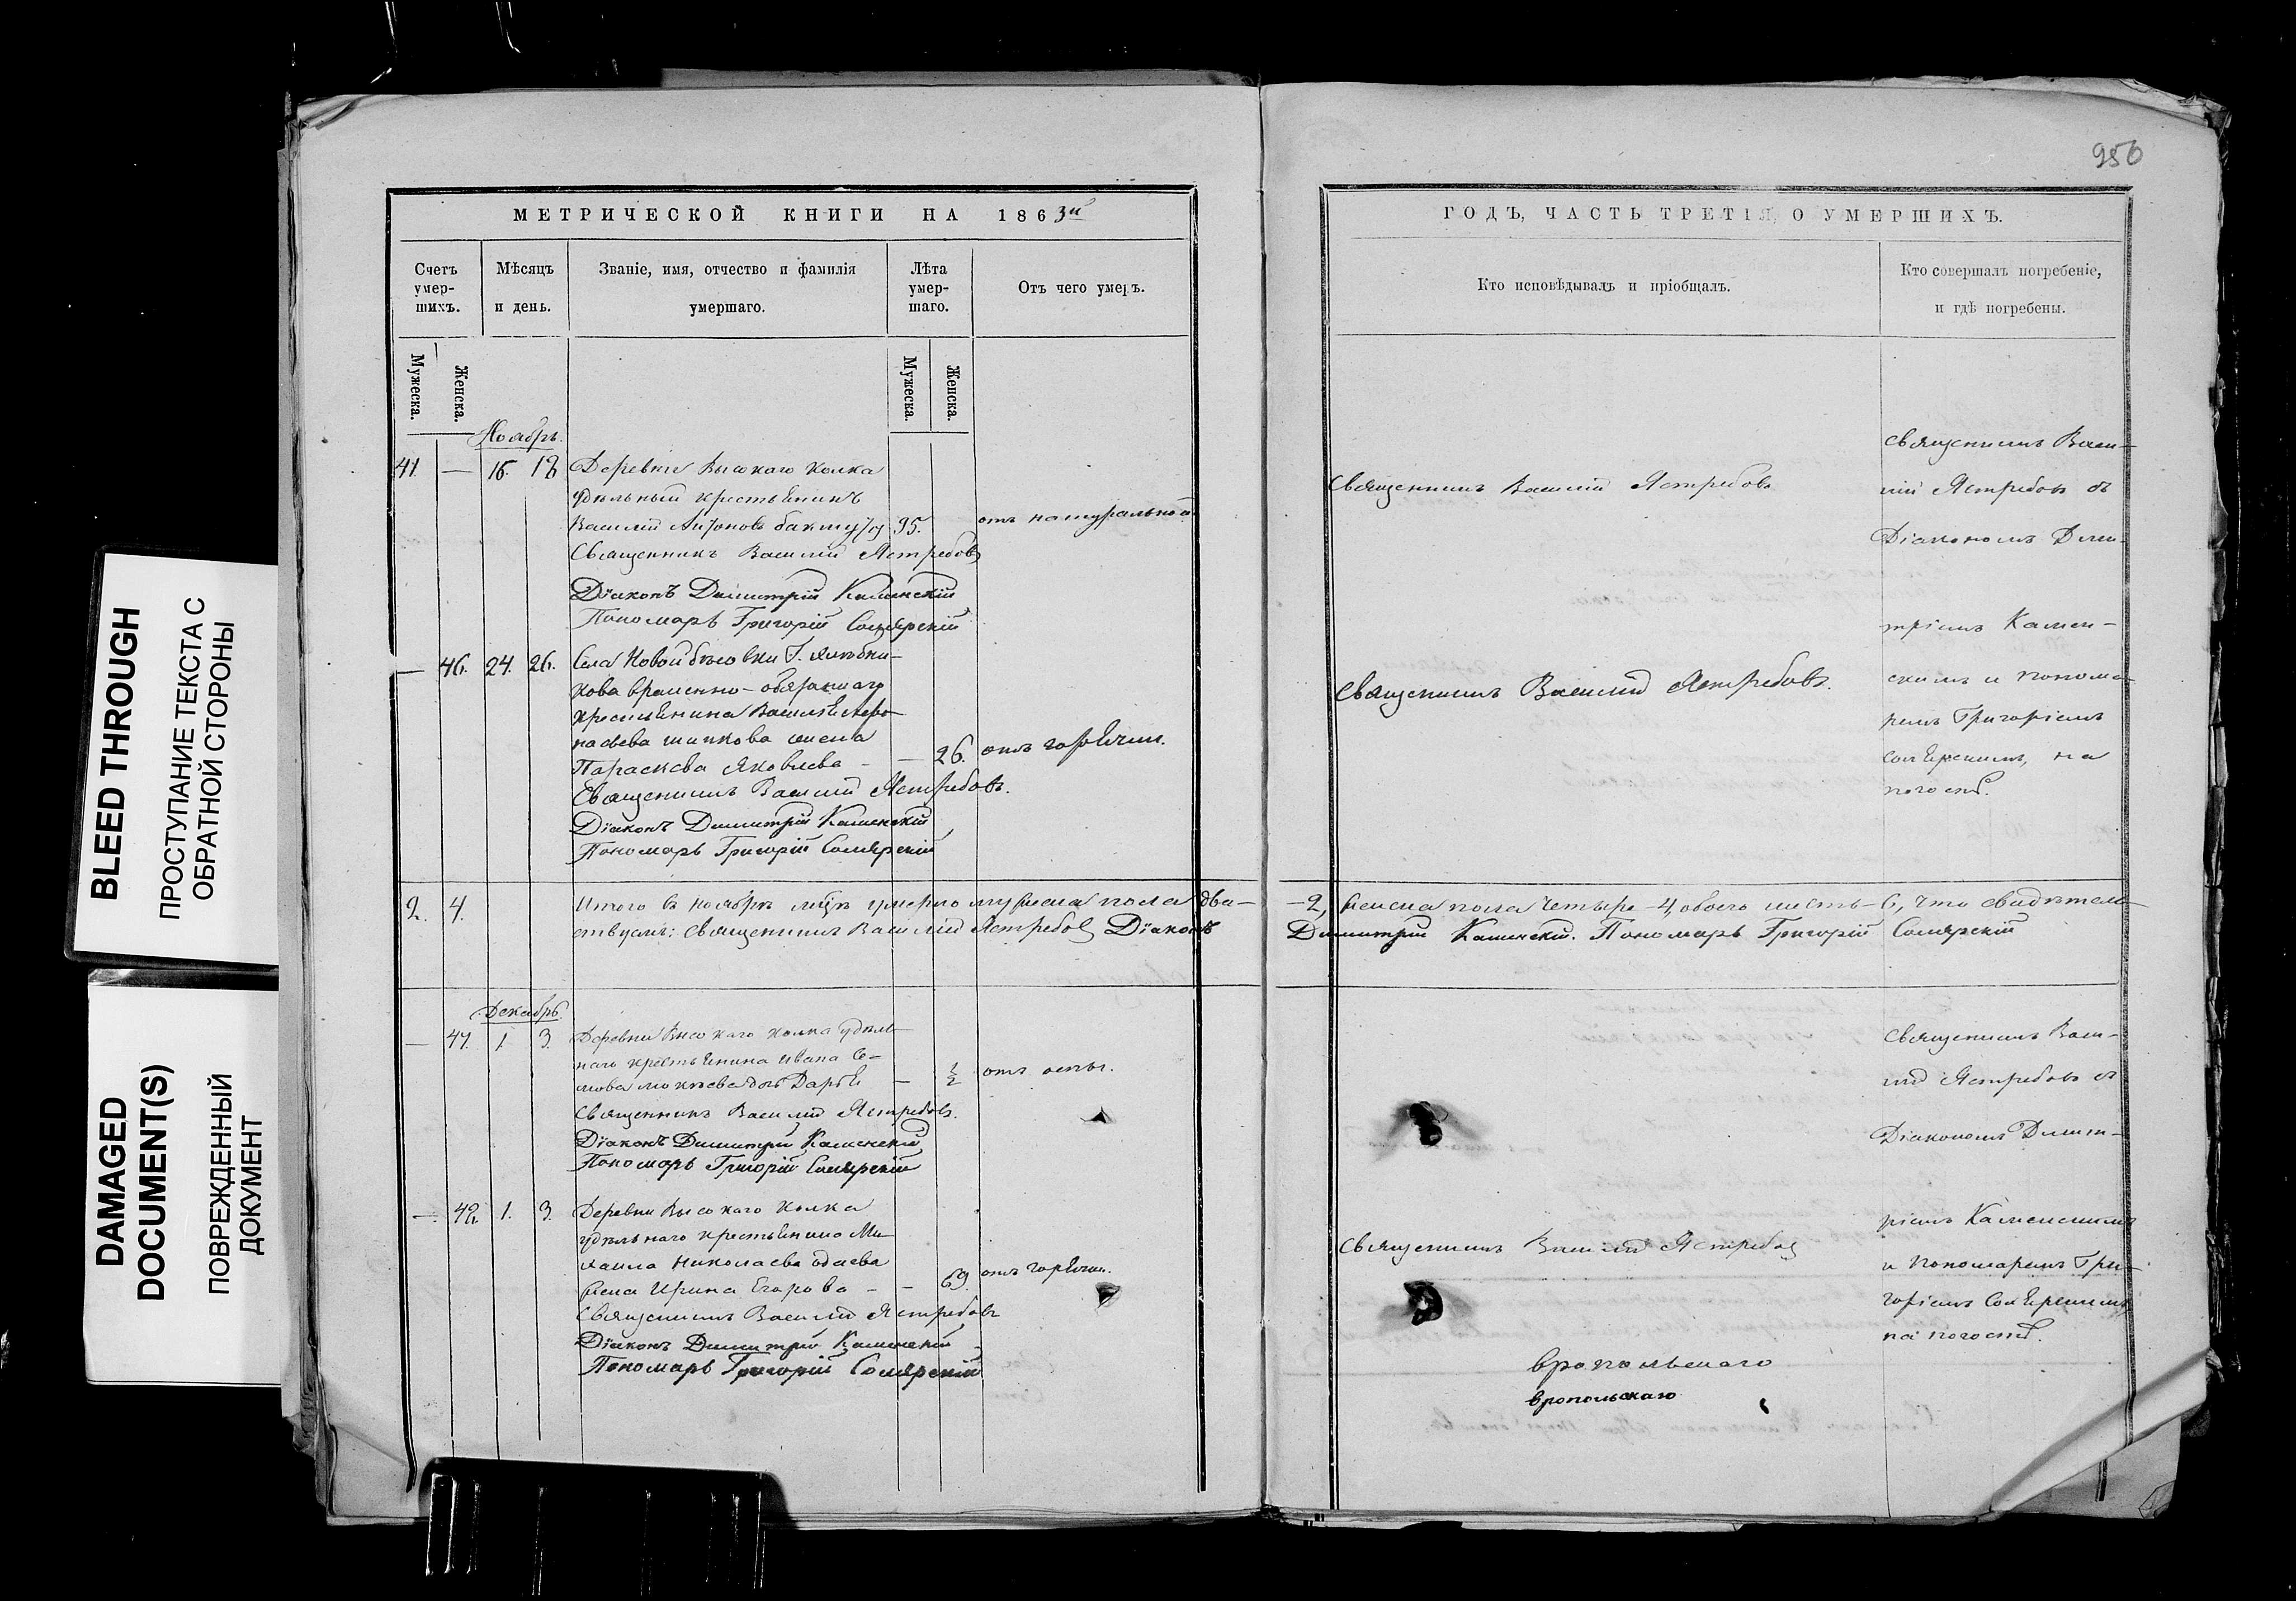 BLEED THROUGH
ПРОСТУПАНИЕ ТЕКСТА С
ОБРАТНОЙ СТОРОНЫ
DAMAGED
DOCUMENT(S)
ПОВРЕЖДЕННЫЙ
ДОКУМЕНТ
МЕТРИЧЕСКОЙ КНИГИ НА 1863й
Счетъ
умер-
шихъ.
Мѣсяцъ
и день.
Званіе, имя, отчество и фамилія
умершаго.
Лѣта
умер-
шаго.
Отъ чего умеръ.
Мужеска.
Женска.
Мужеска.
Женска.
Ноябрь.
41. — 16. 18 Деревни Высокаго Колка
удѣльный крестьянинъ
Василій Антоновъ 95. отъ натуральной
Священникъ Василій Ястребовъ
Діаконъ Димитрій Каменскій
Пономарь Григорій Солярскій
— 46. 24. 26. Села Новой
кова временно-обязаннаго
крестьянина
жена
Параскева Яковлева — — 26. отъ горячки.
Священникъ Василій Ястребовъ.
Діаконъ Димитрій Каменскій
Пономарь Григорій Солярскій
2. 4. Итого въ ноябрѣ мѣцѣ умерло мужеска пола два—
ствуемъ: Священникъ Василій Ястребовъ Діаконъ
Декабрь.
— 47. 1. 3. Деревни Высокаго Колка удѣль-
наго крестьянина Ивана Се-
Дарья — ½ отъ оспы.
Священникъ Василій Ястребовъ.
Діаконъ Димитрій Каменскій
Пономарь Григорій Солярскій
— 48. 1. 3. Деревни Высокаго Колка
удѣльнаго крестьянина Ми-
хаила Николаева
жена Ирина Егорова — — 69. отъ горячки.
Священникъ Василій Ястребовъ
Діаконъ Димитрій Каменскій
Пономарь Григорій Солярскій
956
ГОДЪ, ЧАСТЬ ТРЕТІЯ, О УМЕРШИХЪ.
Кто исповѣдывалъ и пріобщалъ.
Кто совершалъ погребеніе,
и гдѣ погребены.
Священникъ Василій Ястребовъ
Священникъ Василій Ястребовъ.
Священникъ Васи-
лій Ястребовъ съ
Діакономъ Дими-
тріемъ Камен-
скимъ и понома-
ремъ Григоріемъ
Солярскимъ, на
погостѣ.
—2, женска пола четыре—4, обоего шесть—6, что свидѣтель-
Димитрій Каменскій. Пономарь Григорій Солярскій
Священникъ Васи-
лій Ястребовъ съ
Діакономъ Димит-
ріемъ Каменскимъ
и Пономаремъ Гри-
горіемъ Солярскимъ
на погостѣ.
Священникъ Василій Ястребовъ